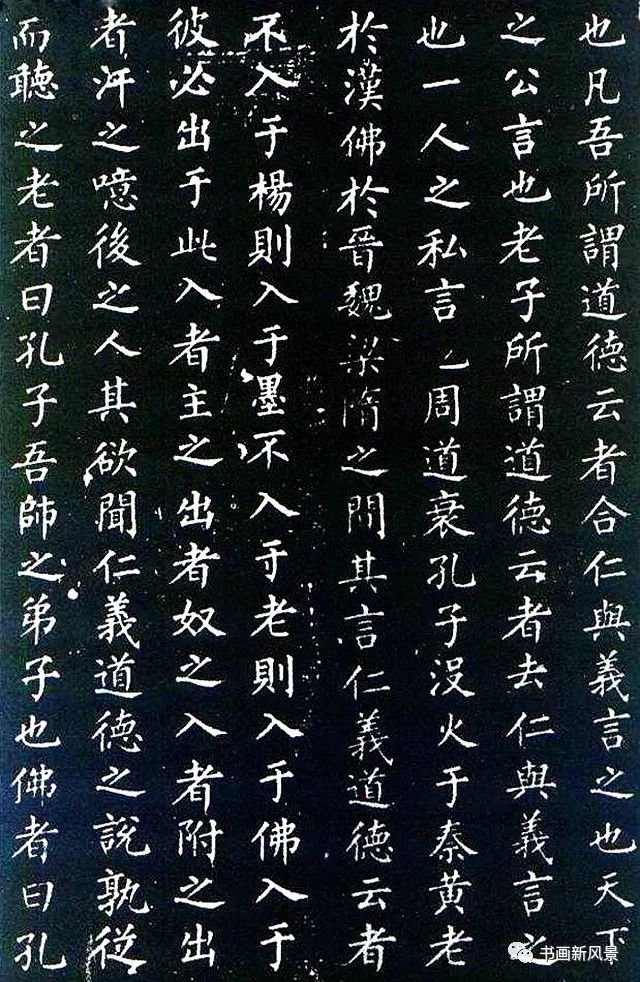 也凡吾所謂道德云者合仁與義言之也天下
之公言也老子所謂道德云者去仁與義言之
也一人之私言周道衰孔子没火于秦黃老
於漢佛於晉魏梁隋之間其言仁義道德云者
不入于楊則入于墨不入于老則入于佛入于
彼必出于此入者主之出者奴之入者附之出
者汙之噫後之人其欲聞仁義道德之說孰從
而聽之老者曰孔子吾師之弟子也佛者曰孔
书画新风景